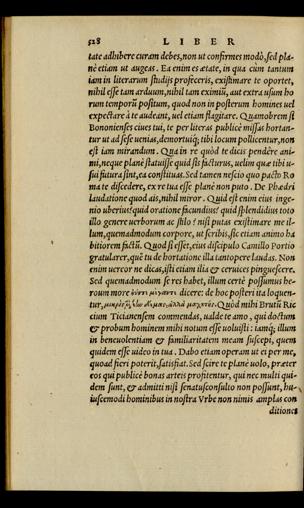 528 LIBER
tate adhibere curam debes, non ut confirmes modò, sed pla-
nè etiam ut augeas. Ea enim es ætate, in qua cùm tantum
iam in literarum studijs profeceris, existimare te oportet,
nihil esse tam arduum, nihil tam eximiũ, aut extra usum ho
rum temporũ positum, quod non in posterum homines uel
expectare à te audeant, uel etiam flagitare. Quamobrem si
Bononienses ciues tui, te per literas publicè missas hortan-
tur ut ad sese uenias, demortuiq; tibi locum pollicentur, non
est iam mirandum. Qua in re quòd te dicis pendêre ani-
mi, neque planè statuisse quid sis facturus, uelim quæ tibi u-
sui futura sint, ea constituas. Sed tamen nescio quo pacto Ro
ma te discedere, ex re tua esse planè non puto. De Phædri
laudatione quod ais, nihil miror. Quid est enim eius inge-
nio uberius? quid oratione facundius? quid splendidius toto
illo genere uerborum ac stilo? nisi putas existimare me il-
lum, quemadmodum corpore, ut scribis, sic etiam animo ha
bitiorem factũ. Quod si esset, eius discipulo Camillo Portio
gratularer, què tu de hortatione illa tantopere laudas. Non
enim uereor ne dicas, isti etiam ilia & ceruices pinguescere.
Sed quemadmodum se res habet, illum certè possumus he-
roum more dicere: de hoc posteri ita loquen-
tur, Quid mihi Brutũ Ric
cium Ticianensem commendas, ualde te amo, qui doctum
& probum hominem mihi notum esse uoluisti: iamq; illum
in beneuolentiam & familiaritatem meam suscepi, quem
quidem esse uideo in tua. Dabo etiam operam ut ei per me,
quoad fieri poterit, satisfiat. Sed scire te planè uolo, præter
eos qui publicè bonas arteis profitentur, qui nec multi qui-
dem sunt, & admitti nisi senatusconsulto non possunt, hu-
iuscemodi hominibus in nostra Vrbe non nimis amplas con
ditiones